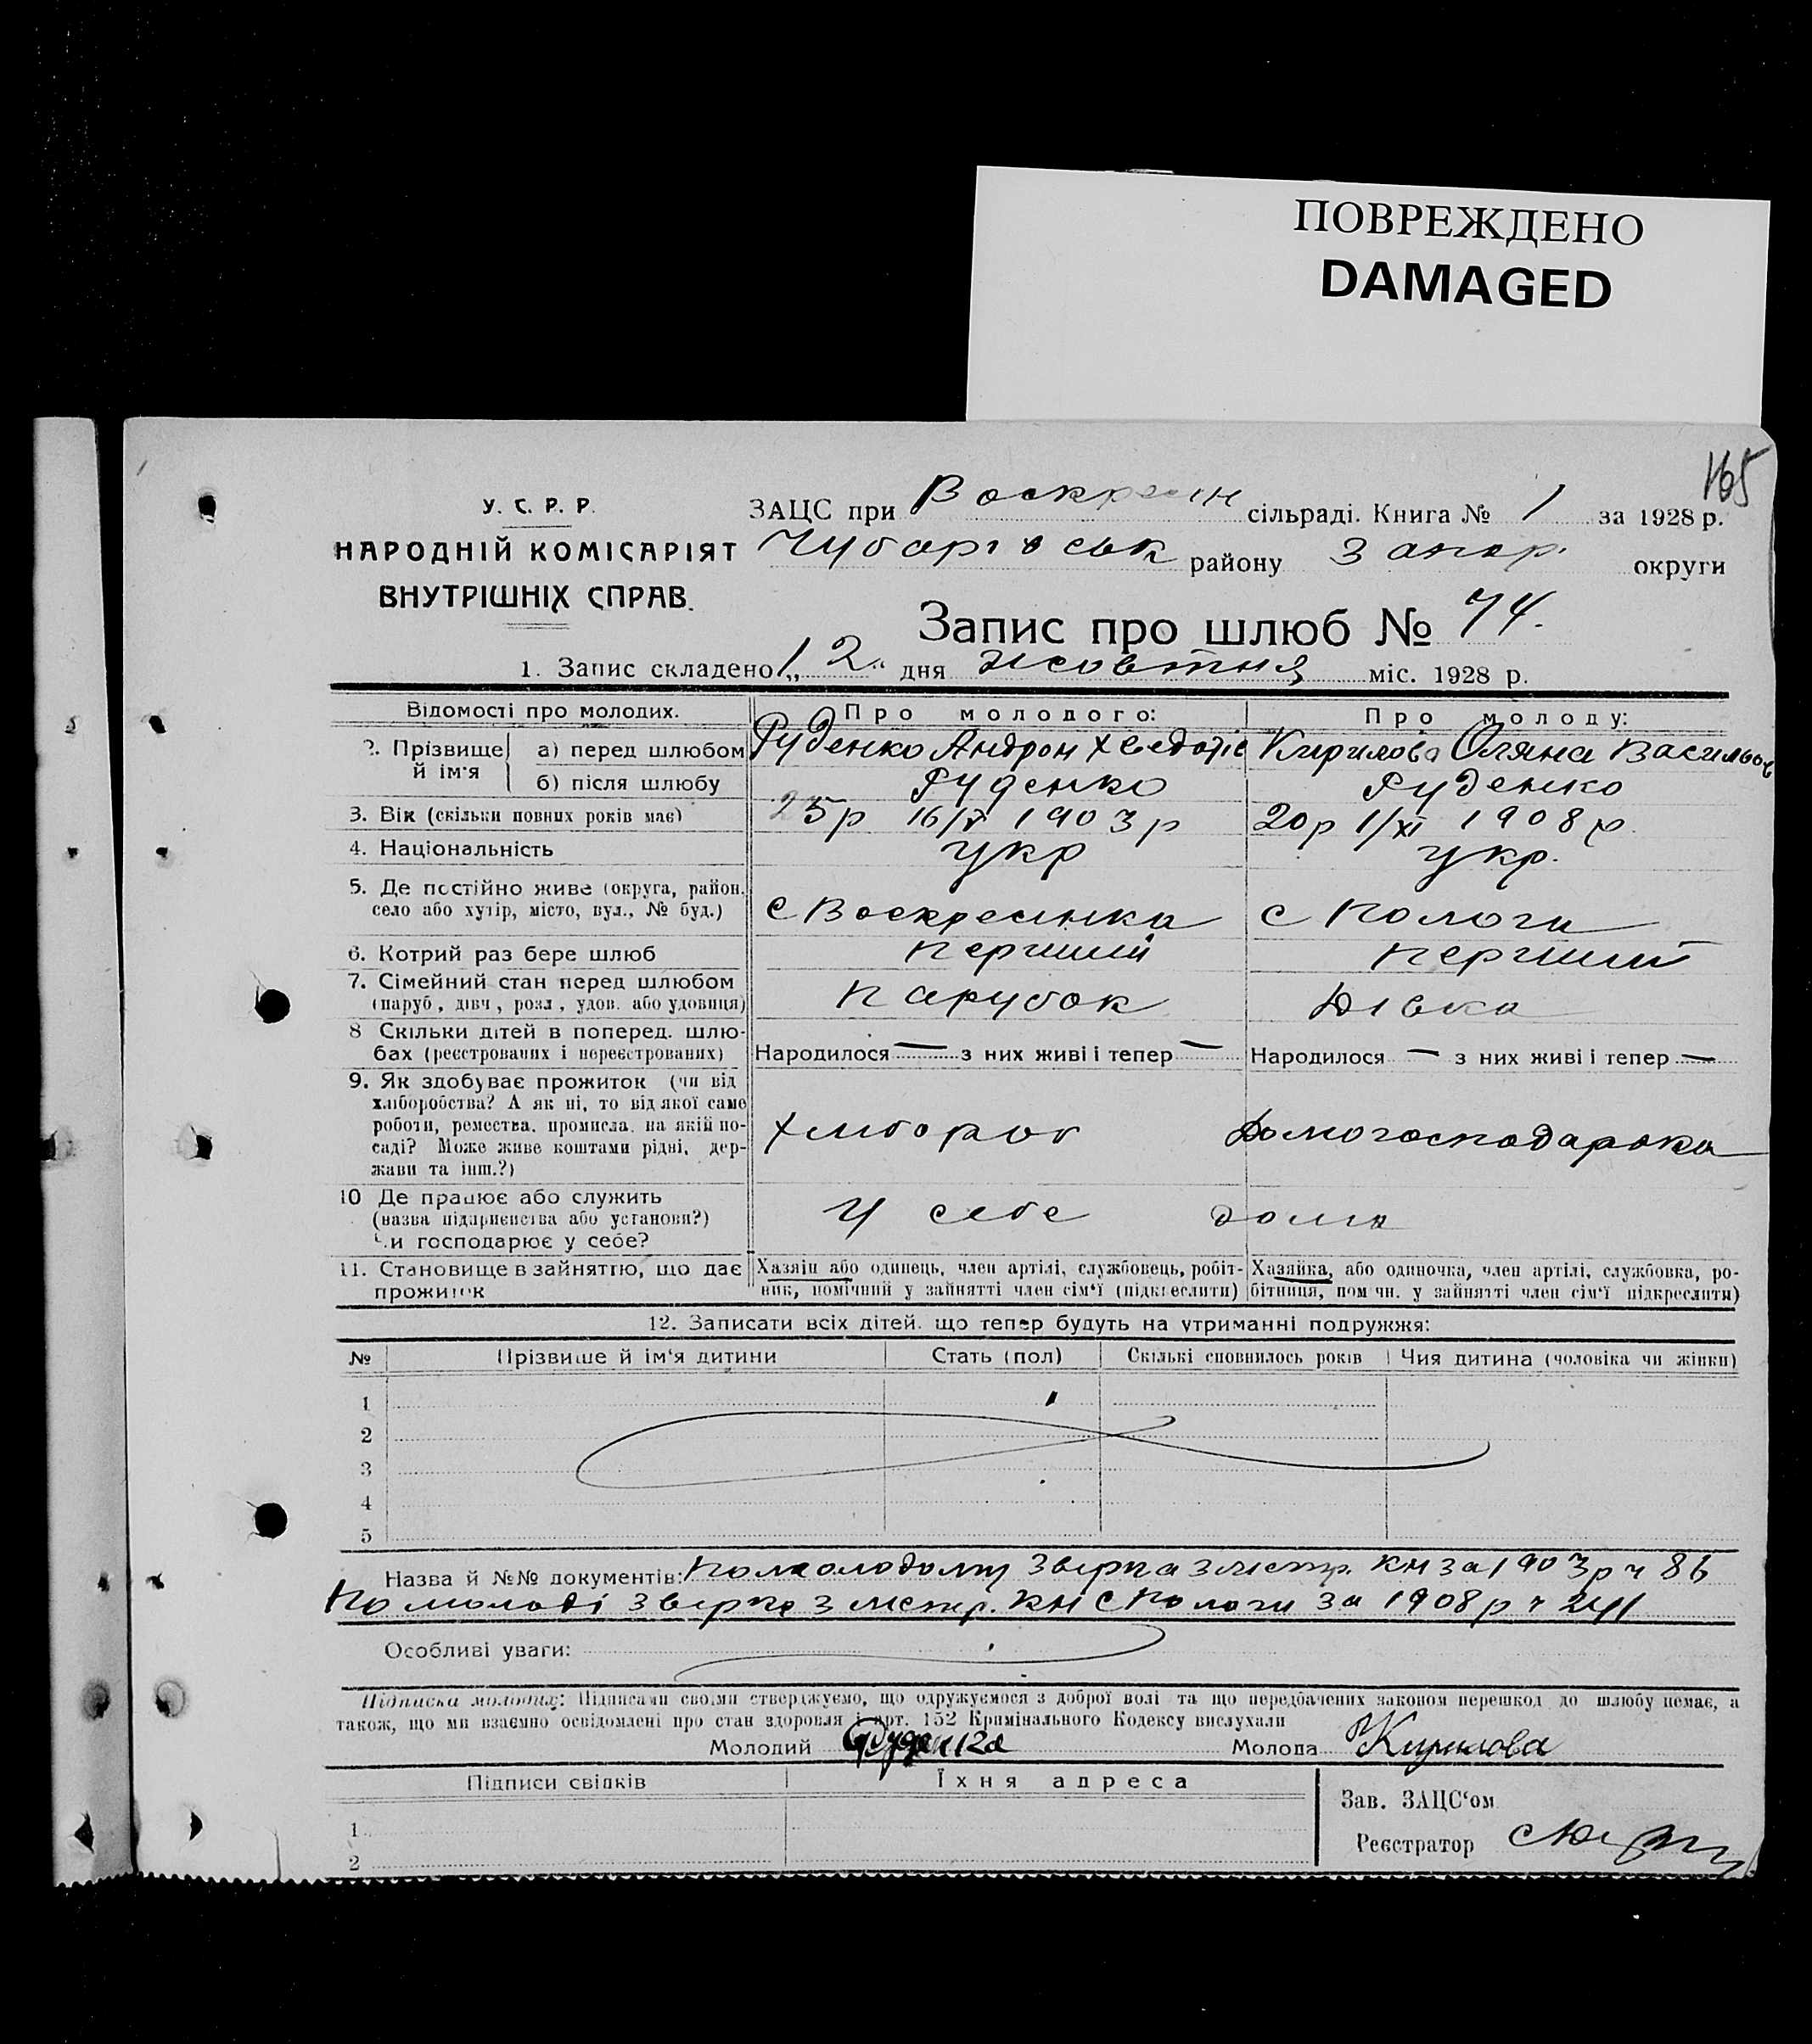 ПОВРЕЖДЕНО
DAMAGED
165
У. С. Р. Р.
НАРОДНІЙ КОМІСАРІЯТ
ВНУТРІШНІХ СПРАВ.
ЗАЦС при Воскресен сільраді. Книга № 1 за 1928 р.
Чубарівськ району Запор. округи
Запис про шлюб № 74.
1. Запис складено „12„ дня жовтня міс. 1928 р.
Відомості про молодих. Про молодого: Про молоду:
2. Прізвище й ім'я а) перед шлюбом Руденко Андрон Хведотів Кирилова Оляна Васильов
б) після шлюбу Руденко Руденко
3. Вік (скільки повних років має) 25р 16/V 1903р 20р 1/XI 1908р.
4. Національність укр укр.
5. Де постійно живе (округа, район, село або хутір, місто, вул., № буд.) с Воскресенка с Пологи
6. Котрий раз бере шлюб перший перший
7. Сімейний стан перед шлюбом (паруб., дівч., розл., удов. або удовиця) парубок Дівка
8 Скільки дітей в поперед. шлюбах (реєстрованих і нереєстрованих) Народилося — з них живі і тепер — Народилося — з них живі і тепер —
9. Як здобуває прожиток (чи від хліборобства? А як ні, то від якої саме роботи, ремества, промисла, на якій посаді? Може живе коштами рідні, держави та інш.?) Хлібороб Домогосподарка
10 Де працює або служить (назва підприємства або установи?) Чи господарює у себе? У себе дома
11. Становище в зайняттю, що дає прожиток Хазяїн або одинець, член артілі, службовець, робітник, помічний у зайнятті член сім'ї (підкреслити) Хазяйка, або одиночка, член артілі, службовка, робітниця, помічн. у зайнятті член сім'ї підкреслити)
12. Записати всіх дітей, що тепер будуть на утриманні подружжя:
№ Прізвище й ім'я дитини Стать (пол) Скількі сповнилось років Чия дитина (чоловіка чи жінки)
1
2
3
4
5
Назва й №№ документів: По молодому звірка з метр. кн за 1903р ч 86
По молоді звірка з метр. кн с Пологи за 1908р ч 241
Особливі уваги:
Підписка молодих: Підписами своїми стверджуємо, що одружуємося з доброї волі та що передбачених законом перешкод до шлюбу немає, а
також, що ми взаємно освідомлені про стан здоровля і арт. 152 Кримінального Кодексу вислухали
Молодий Руденко Молода Кирилова
Підписи свідків Їхня адреса
Зав. ЗАЦС'ом
1
Реєстратор
2